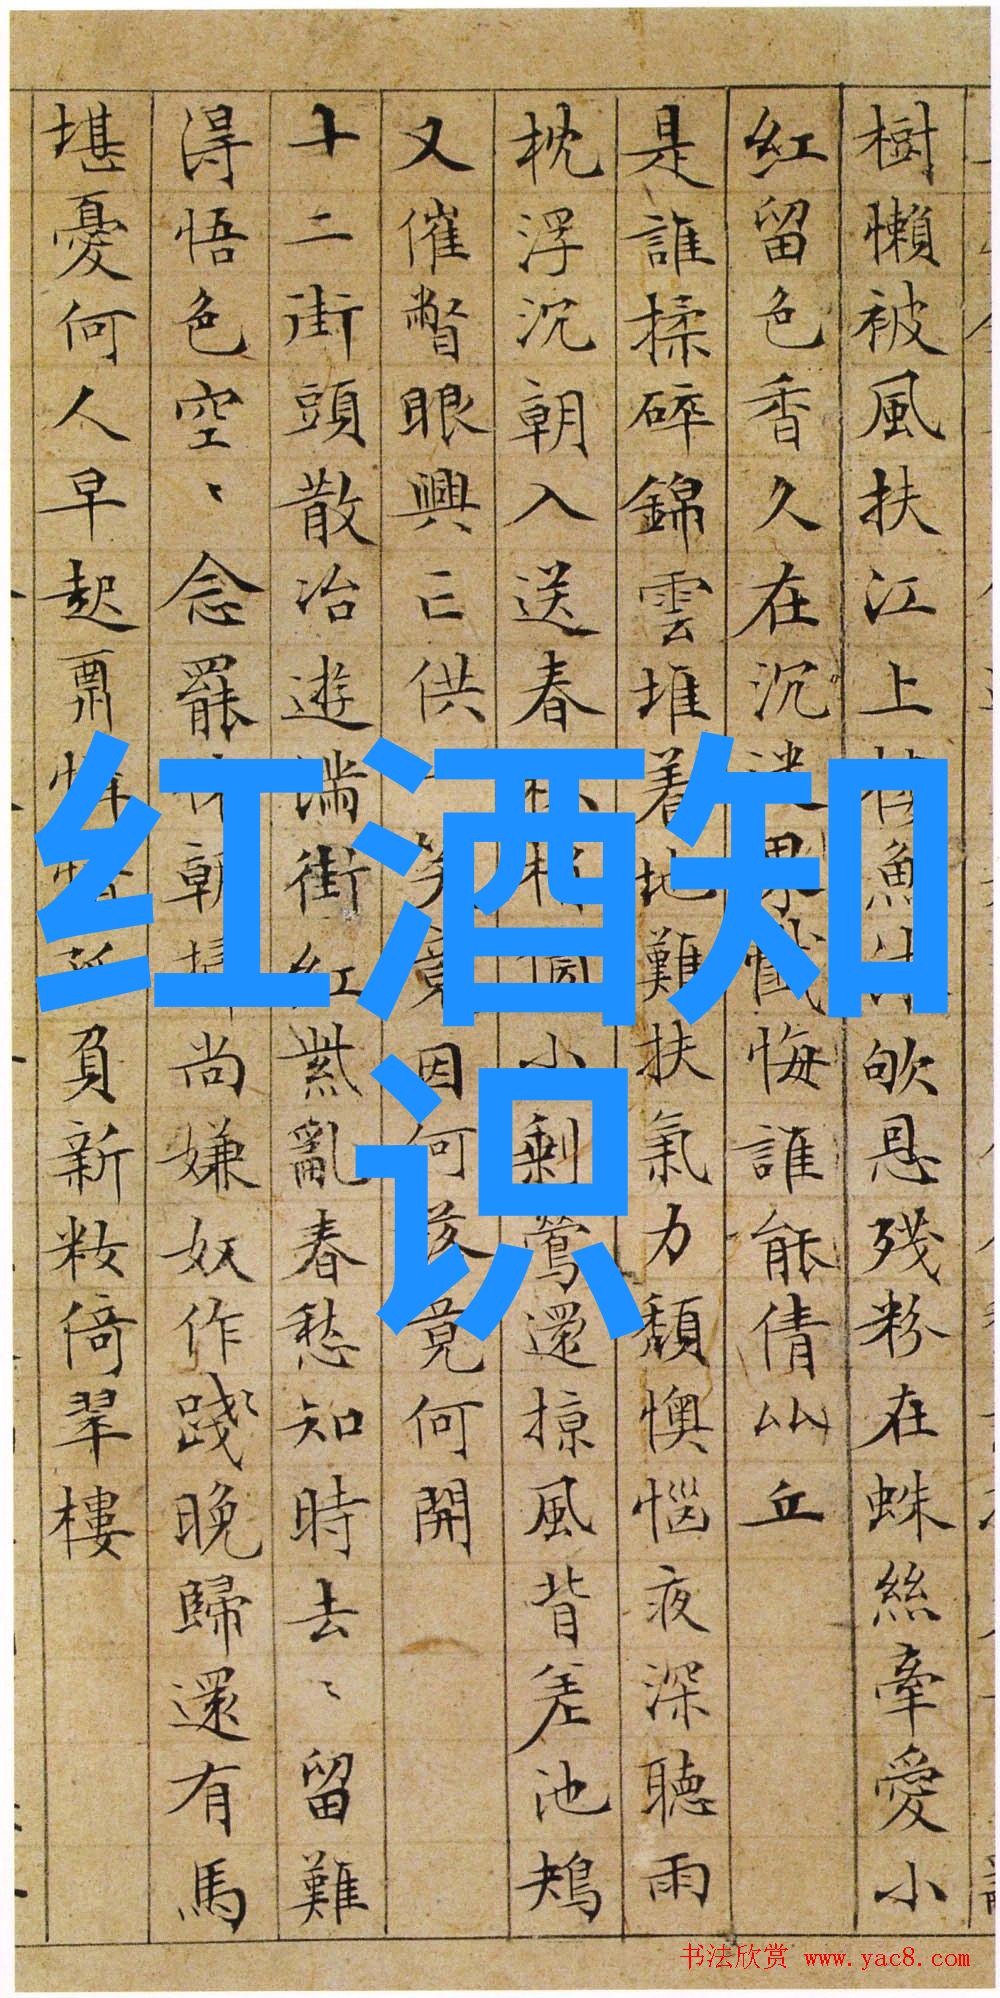 樹懶被風扶江上
魚
欨恩殘粉在蛛絲牽愛小
紅留色香久在沉
懺悔誰能倩比丘
是誰揉碎錦雲堆着地難扶氣力頹懊惱夜深聽雨
枕浮沉朝入送春
小剩鶯還掠風背差池鳷
又催瞥眼興亡供
因何落竟何開
十二街頭散冶遊滿街紅紫亂春愁知時去〻留難
得悟色空〻念罷
朝
尚嫌奴作踐〻晚歸還有馬
堪憂何人早起
負新妝倚翠樓
红酒知
识
书法欣赏 www.yac8.com